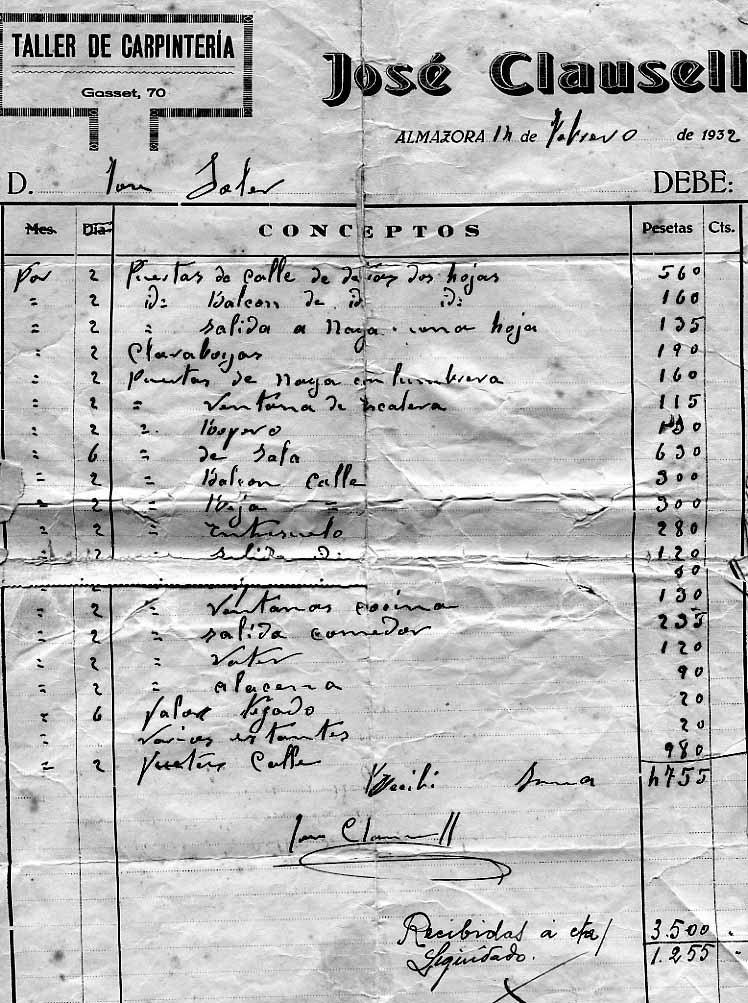 TALLER DE CARPINTERÍA
Gasset, 70
José Clausell
ALMAZORA 14 de Febrero de 1932
D. Jose Soler DEBE:
Mes. Día CONCEPTOS Pesetas Cts.
Por 2 Puertas de calle de dos hojas 560
" 2 id= Balcon de id id= 160
" 2 " salida a Naya una hoja 135
" 2 Claraboyas 190
" 2 Puertas de naya con lumbrera 160
" 2 " Ventana de escalera 115
" 2 " Ropero
" 6 " de Sala 630
" 2 " Balcon calle 300
" 2 " Reja 300
" 2 " Entresuelo 280
" 2 " salida 120
130
" 2 " Ventanas cocina 235
" 2 " salida comedor 120
" 2 " Vater 90
" 2 " alacena 20
" 6 Tejado 20
" Varios estantes 980
" 2 Puertas Calle
Recibi Suma 4755
Jose Clausell
Recibidas á cta/ 3.500
Liquidado. 1.255